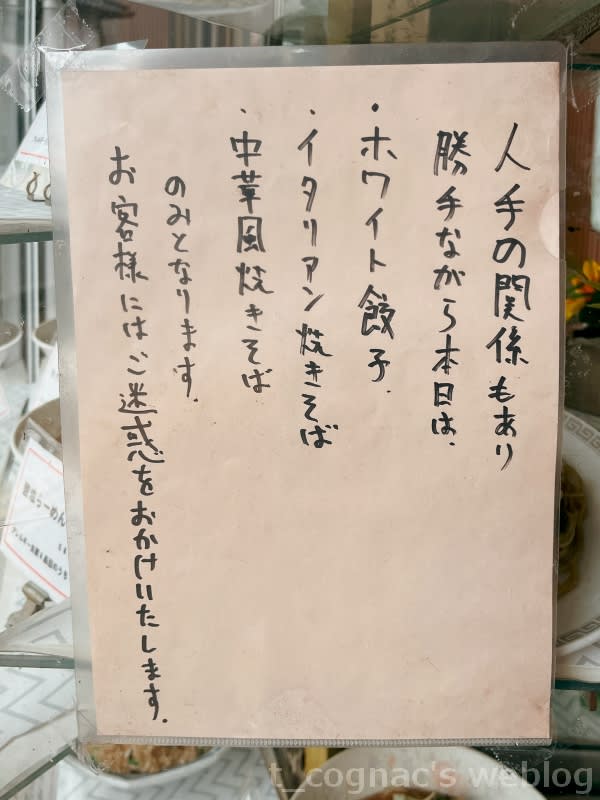 人手の関係もあり
勝手ながら本日は、
・ホワイト餃子、
・イタリアン焼きそば
・中華風焼きそば
のみとなります。
お客様にはご迷惑をおかけいたします。
t_cognac's weblog